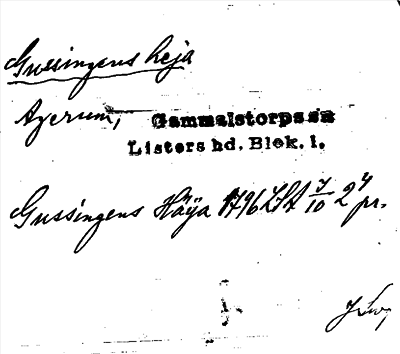 Gussingens heja
Agerum, Gammalstorps sn
Listers hd. Blek. l.
Gussingens Häija 1796 LSA 7/10 2 4 pr.